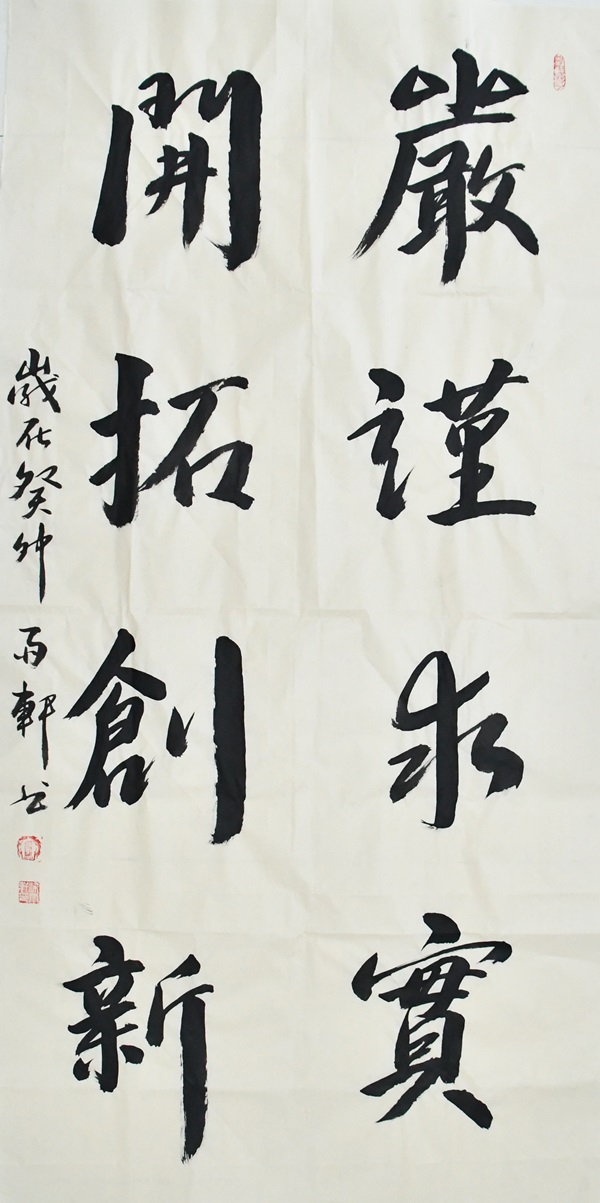 嚴謹求實
開拓創新
歲在癸卯 雨軒书